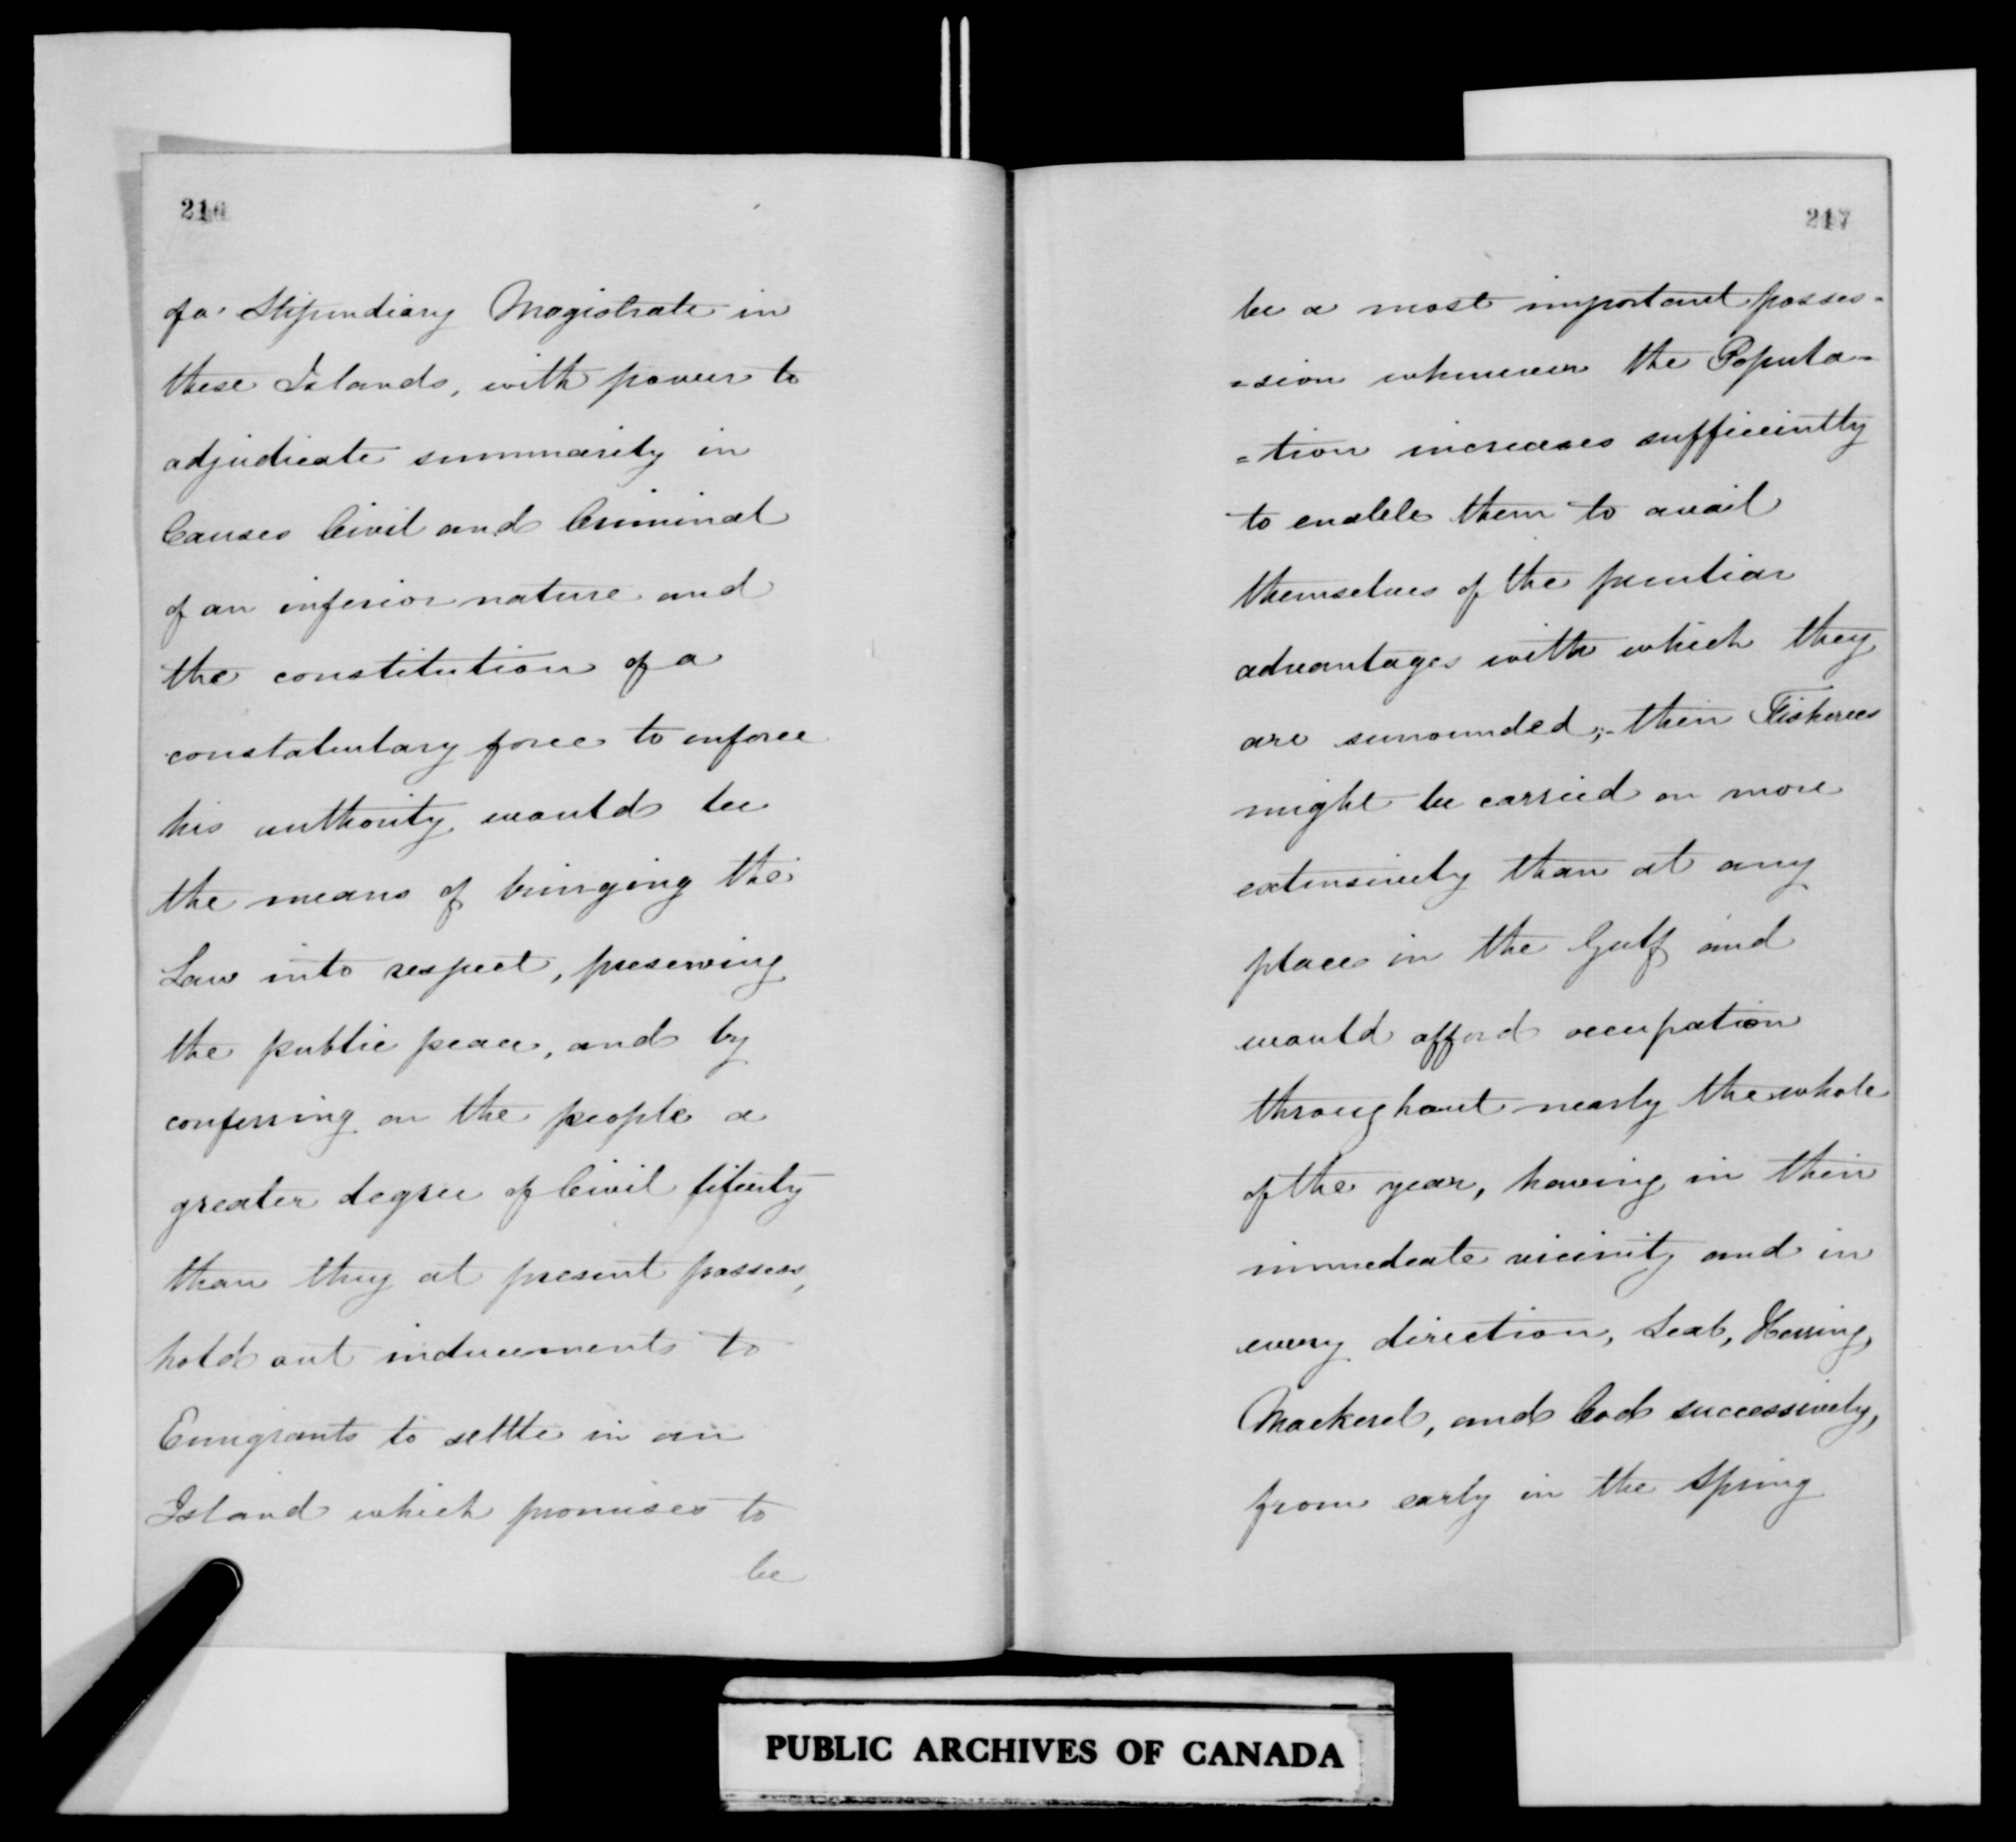 216
of a Stipendiary Magistrate in
these Islands, with power to
adjudicate summarily in
Causes Civil and Criminal
of an inferior nature and
the constitution of a
constabulary force to enforce
his authority would be
the means of bringing the
Law into respect, preserving
the public peace, and by
conferring on the people a
greater degree of Civil liberty
than they at present possess,
hold out inducements to
Emigrants to settle in an
Island which promises to
be
217
be a most important posses-
=sion whenever the Popula=
=tion increases sufficiently
to enable them to avail
themselves of the peculiar
advantages with which they
are surrounded;- their Fisheries
might be carried on more
extensively than at any
place in the Gulf and
would afford occupation
throughout nearly the whole
of the year, having in their
immediate vicinity and in
every direction, Seal, Herring,
Mackerel, and Cod successively,
from early in the Spring
PUBLIC ARCHIVES OF CANADA